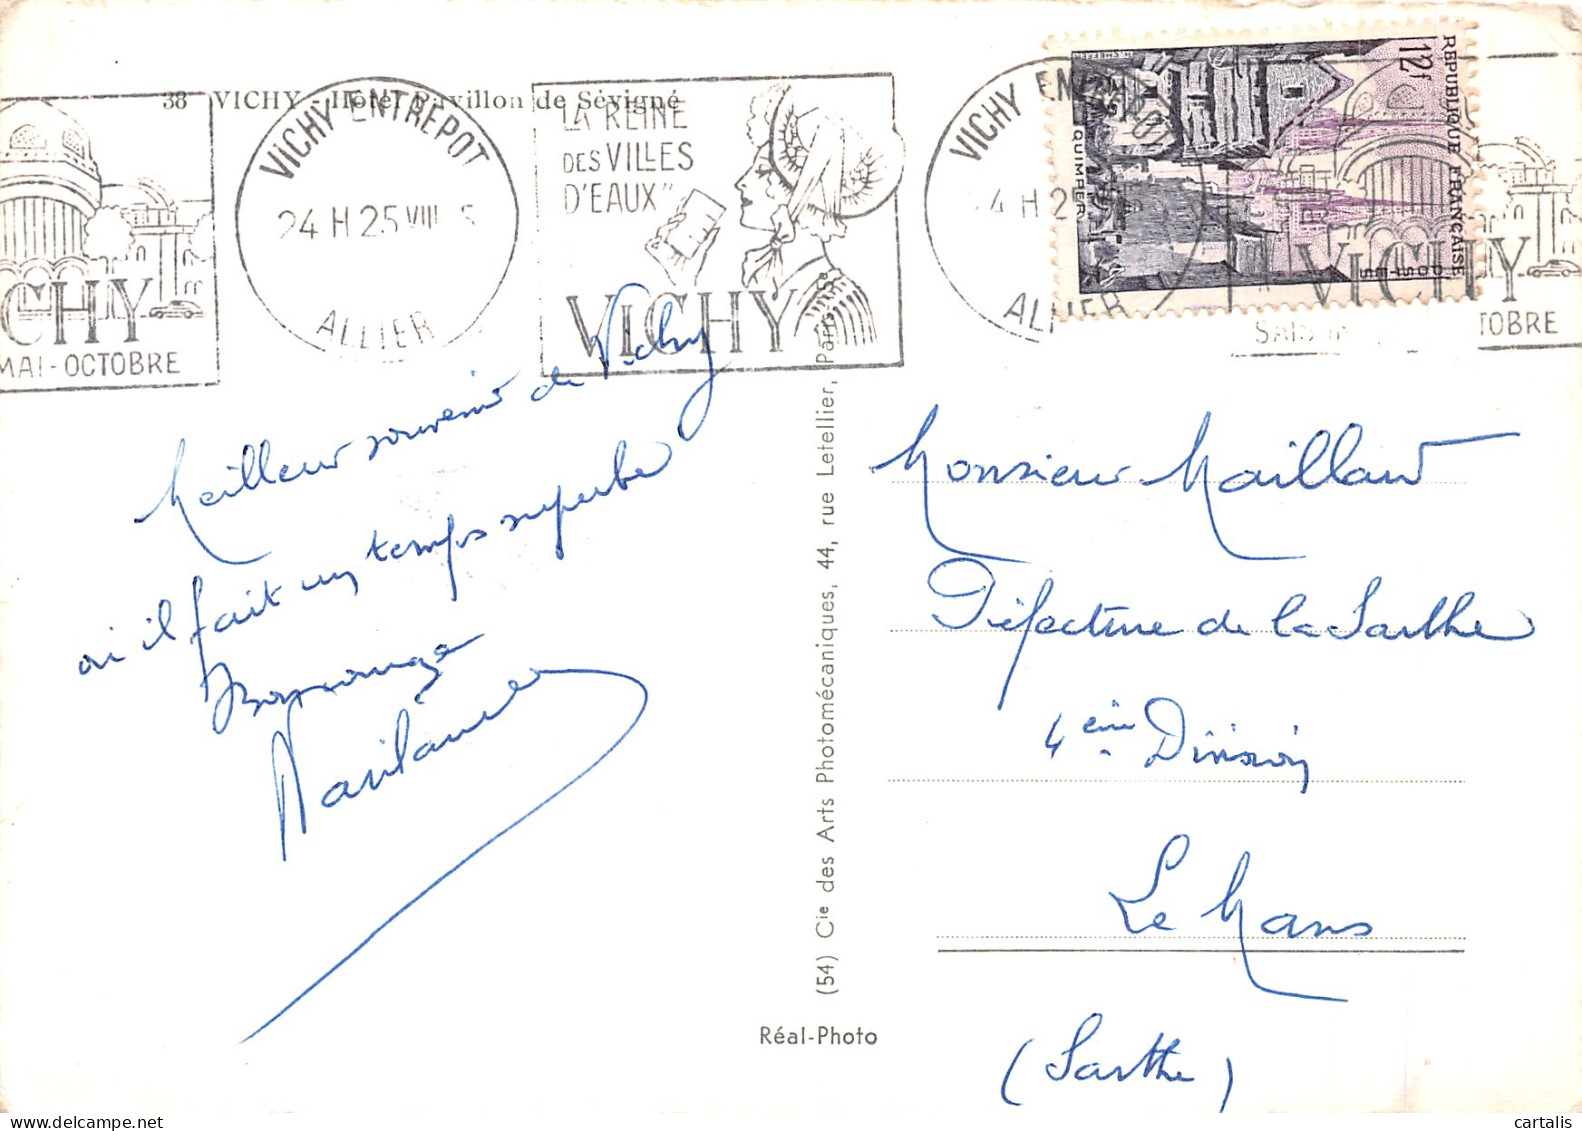 38 VICHY - Hôtel Pavillon de Sévigné
CHY
MAI - OCTOBRE
VICHY ENTREPOT
24 H 25 VIII 5
ALLIER
"LA REINE
DES VILLES
D'EAUX"
VICHY
VICHY ENTREPOT
24 H 25
ALLIER
RÉPUBLIQUE FRANÇAISE
12f
QUIMPER
POSTES
VICHY
SAISON
TOBRE
Meilleur souvenir de Vichy
où il fait un temps superbe
Monsieur Maillard
Préfecture de la Sarthe
4ème Division
Le Mans
(Sarthe)
(54) Cie des Arts Photomécaniques, 44, rue Letellier, Paris-15e
Réal-Photo
cartalis